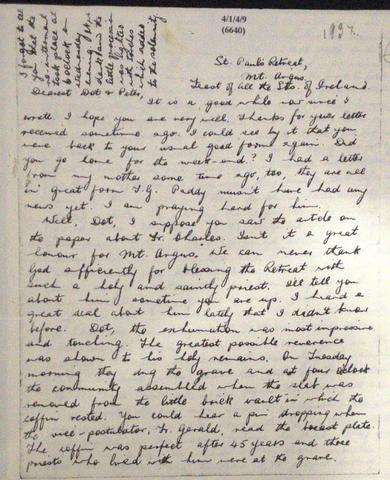 4/1/4/9
(6640)
1937.
I forgot to tell
you that the
re-interment
took place at
6 o'clock on
Wednesday
evening. It was
dark and the
little procession
was lighter
by torches
which added
to the solemnity.
St. Paul's Retreat,
Mt. Argus,
Feast of all the Sts. of Ireland.
Dearest Dot & Peter,
It is a good while now since I
wrote. I hope you are very well. Thanks for your letter
received sometime ago. I could see by it that you
were back to your usual good form again. Did
you go home for the week-end? I had a letter
from my mother some time ago, too, they are all
in great form T.G. Paddy mustn't have had any
news yet. I am praying hard for him.
Well, Dot, I suppose you saw the article on
the paper about Fr. Charles. Isn't it a great
honour for Mt. Argus. We can never thank
God sufficiently for blessing the Retreat with
such a holy and saintly priest. I'll tell you
about him sometime you are up. I heard a
great deal about him lately that I didn't know
before. Dot, the exhumation was most impressive
and touching. The greatest possible reverence
was shown to his holy remains. On Tuesday
morning they dug the grave and at four o'clock
the community assembled when the slab was
removed from the little brick vault in which the
coffin rested. You could hear a pin dropping when
the vice-postulator, Fr. Gerald, read the breast plate.
The coffin was perfect after 45 years and three
priests who lived with him were at the grave.